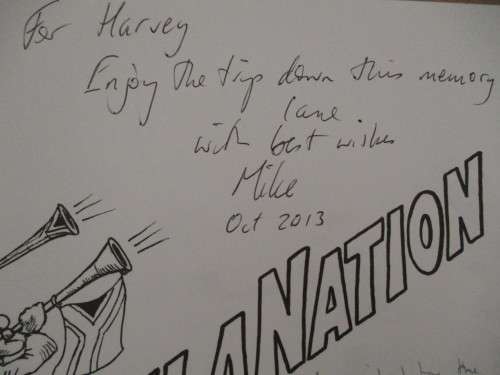 For Harvey
Enjoy the trip down this memory
lane
with best wishes
Mike
Oct 2013
LANATION